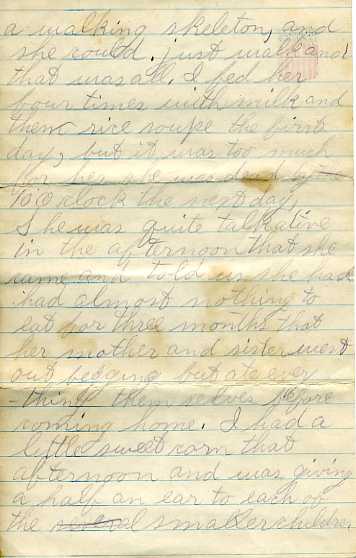 a walking skeleton, and
she could just walk and
that was all. I fed her
four times with milk and
then rice soupe the first
day, but it was too much
for her she was dead by
10 o'clock the next day,
She was quite talkative
in the afternoon that she
came and told us she had
had almost nothing to
eat for three months that
her mother and sister went
out begging but ate every
thing them selves before
coming home. I had a
little sweet corn that
afternoon and was giving
a half an ear to each of
the several smaller children,